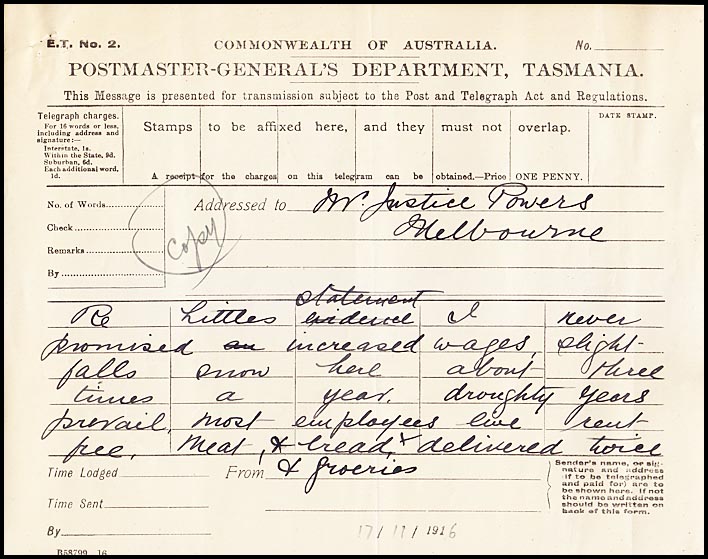 E.T. No. 2.
COMMONWEALTH OF AUSTRALIA.
No.
POSTMASTER-GENERAL'S DEPARTMENT, TASMANIA.
This Message is presented for transmission subject to the Post and Telegraph Act and Regulations.
Telegraph charges.
For 16 words or less,
including address and
signature:—
Interstate, 1s.
Within the State, 9d.
Suburban, 6d.
Each additional word,
1d.
Stamps to be affixed here, and they must not overlap.
A receipt for the charges on this telegram can be obtained.—Price ONE PENNY.
DATE STAMP.
No. of Words
Check
Remarks
By
Copy
Addressed to Mr Justice Powers
Melbourne
statement
Re Littles evidence I never
promised an increased wages, slight
falls snow here about three
times a year, droughty years
prevail, most employees live rent
free, meat, & bread, & delivered twice
& groceries
Time Lodged
From
Sender's name, or sig-
nature and address
(if to be telegraphed
and paid for) are to
be shown here. If not
the name and address
should be written on
back of this form.
Time Sent
By
17/11/1916
B58799 16